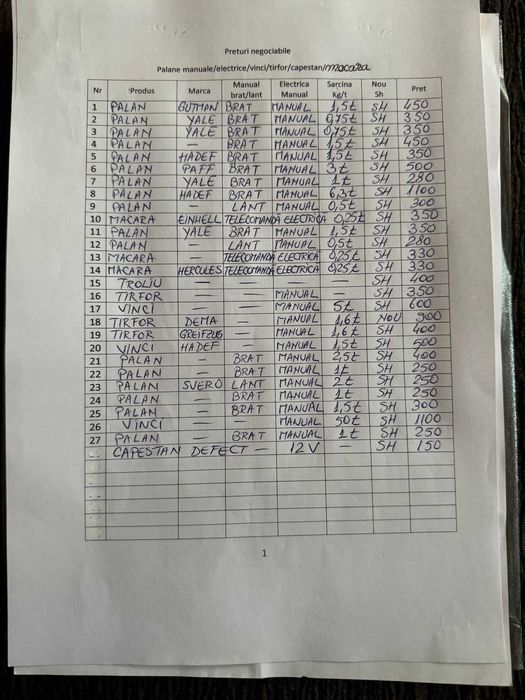 Preturi negociabile
Palane manuale/electrice/vinci/tirfor/capestan/macara
Nr Produs Marca Manual brat/lant Electrica Manual Sarcina Kg/t Nou Sh Pret
1 PALAN GUTMAN BRAT MANUAL 1,5t SH 450
2 PALAN YALE BRAT MANUAL 0,75t SH 350
3 PALAN YALE BRAT MANUAL 0,75t SH 350
4 PALAN — BRAT MANUAL 1,5t SH 450
5 PALAN HADEF BRAT MANUAL 1,5t SH 350
6 PALAN PAFF BRAT MANUAL 3t SH 500
7 PALAN YALE BRAT MANUAL 1t SH 280
8 PALAN HADEF BRAT MANUAL 6,3t SH 1100
9 PALAN — LANT MANUAL 0,5t SH 300
10 MACARA EINHELL TELECOMANDA ELECTRICA 0,25t SH 350
11 PALAN YALE BRAT MANUAL 1,5t SH 350
12 PALAN — LANT MANUAL 0,5t SH 280
13 MACARA — TELECOMANDA ELECTRICA 0,25t SH 330
14 MACARA HERCULES TELECOMANDA ELECTRICA 0,25t SH 330
15 TROLIU — — — — SH 400
16 TIRFOR — — MANUAL — SH 350
17 VINCI — — MANUAL 5t SH 600
18 TIRFOR DEMA — MANUAL 1,6t NOU 900
19 TIRFOR GREIFZUG — MANUAL 1,6t SH 400
20 VINCI HADEF — MANUAL 1,5t SH 500
21 PALAN — BRAT MANUAL 2,5t SH 400
22 PALAN — BRAT MANUAL 1t SH 250
23 PALAN SVERO LANT MANUAL 2t SH 250
24 PALAN — BRAT MANUAL 1t SH 250
25 PALAN — BRAT MANUAL 1,5t SH 300
26 VINCI — — MANUAL 50t SH 1100
27 PALAN — BRAT MANUAL 1t SH 250
CAPESTAN DEFECT — 12V — SH 150
1